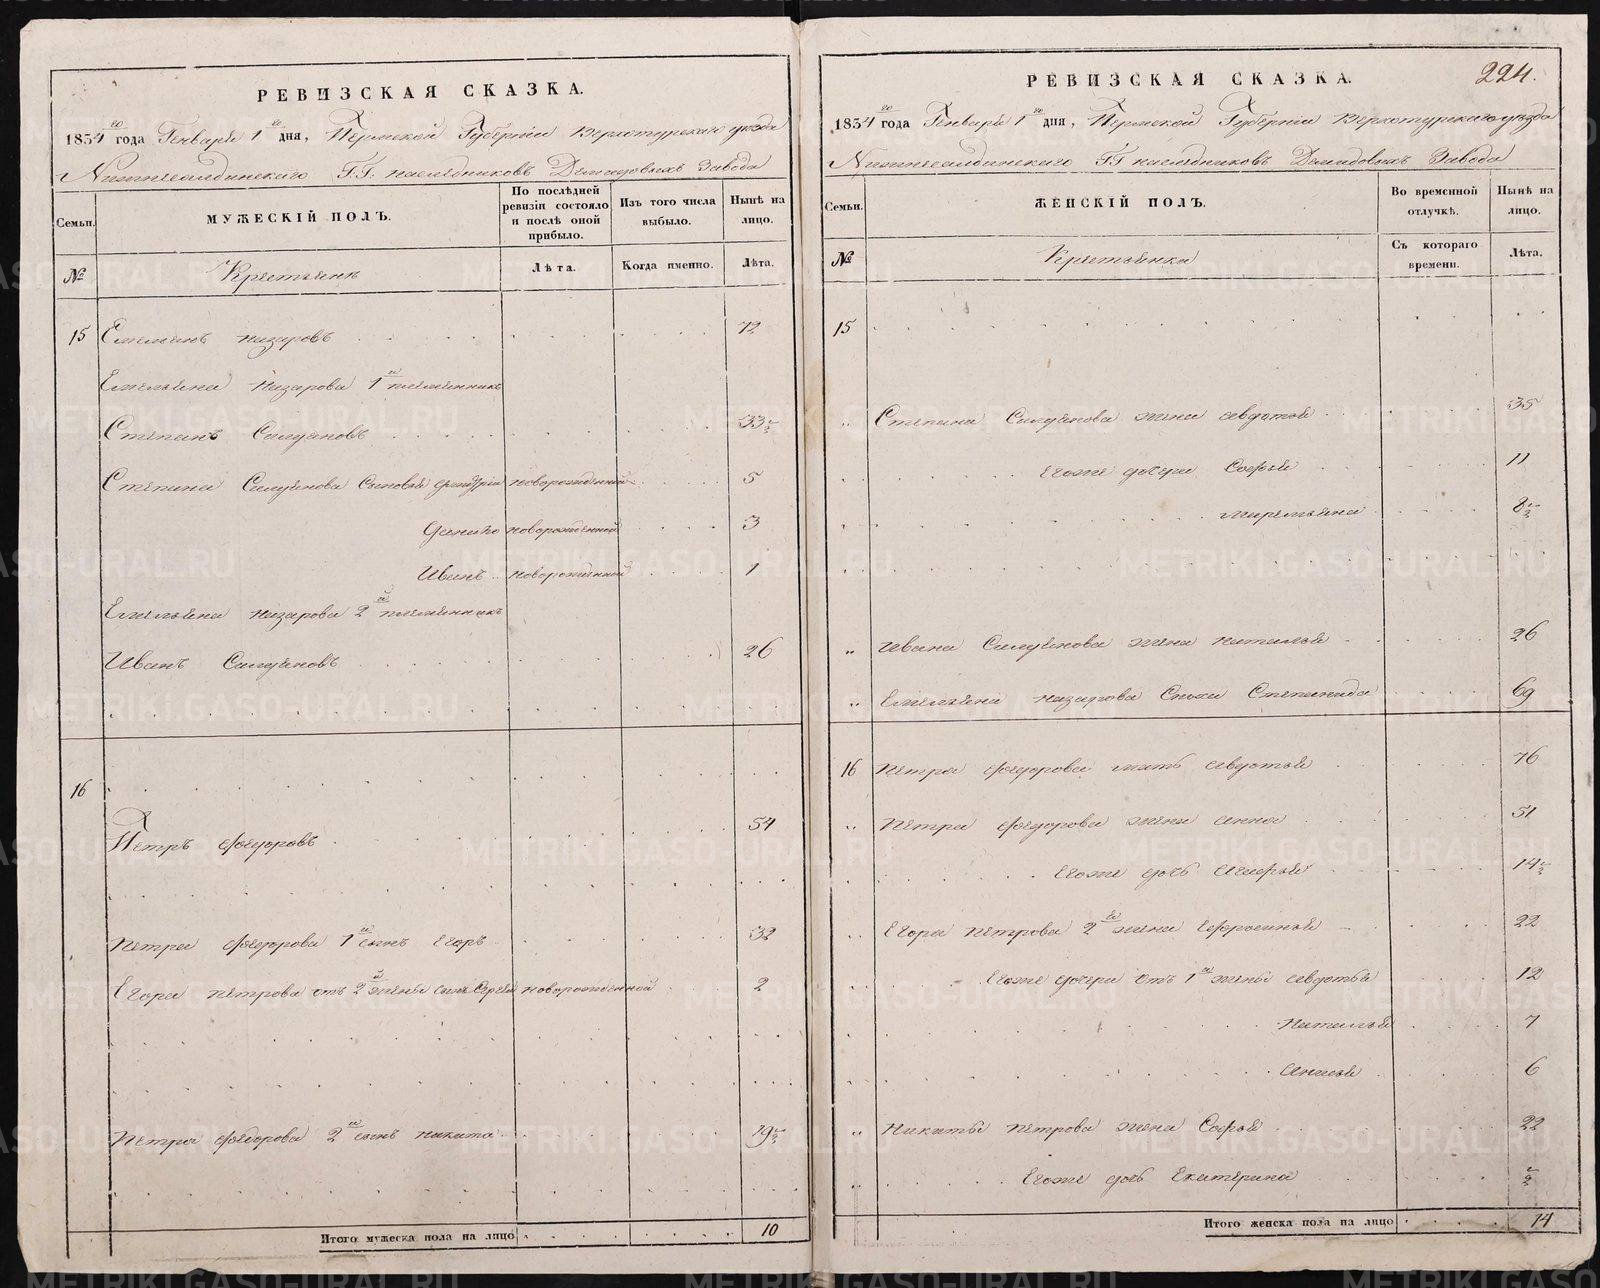 РЕВИЗСКАЯ СКАЗКА.
1834го года Генваря 1го дня, Пермской Губерніи Верхотурскаго уезда
Нижнесалдинскаго Г.Г. наследниковъ Демидовыхъ Завода
Семьи.
МУЖЕСКІЙ ПОЛЪ.
По послѣдней ревизіи состояло и послѣ оной прибыло.
Изъ того числа выбыло.
Нынѣ на лицо.
№
Крестьянъ
Лѣта.
Когда именно.
Лѣта.
15 Емельянъ Назаровъ 72
Емельяна Назарова 1й племянникъ
Степанъ Силуяновъ 33½
Степана Силуянова Сыновья новорожденной 5
Данило новорожденной 3
Иванъ новорожденной 1
Емельяна Назарова 2й племянникъ
Иванъ Силуяновъ 26
16
Петръ Федоровъ 54
Петра Федорова 1й сынъ Егоръ 32
Егора Петрова отъ 2й жены сынъ Сергей новорожденной 2
Петра Федорова 2й сынъ Никита 19½
Итого мужеска пола на лицо 10
224.
РЕВИЗСКАЯ СКАЗКА.
1834го года Генваря 1го дня, Пермской Губерніи Верхотурскаго уезда
Нижнесалдинскаго Г.Г. наследниковъ Демидовыхъ Завода
Семьи.
ЖЕНСКІЙ ПОЛЪ.
Во временной отлучкѣ.
Нынѣ на лицо.
№
Крестьянка
Съ котораго времени.
Лѣта.
15
Степана Силуянова жена Авдотья 35
Егоже дочери Софья 11
Маремьяна 8½
Ивана Силуянова жена Наталья 26
Емельяна Назарова Сноха Степанида 69
16 Петра Федорова мать Авдотья 76
Петра Федорова жена Анна 51
Егоже дочь Агафья 14½
Егора Петрова 2я жена Ефросинья 22
Егоже дочери отъ 1й жены Авдотья 12
Наталья 7
Анисья 6
Никиты Петрова жена Софья 22
Егоже дочь Екатерина ½
Итого женска пола на лицо 14
METRIKI.GASO-URAL.RU